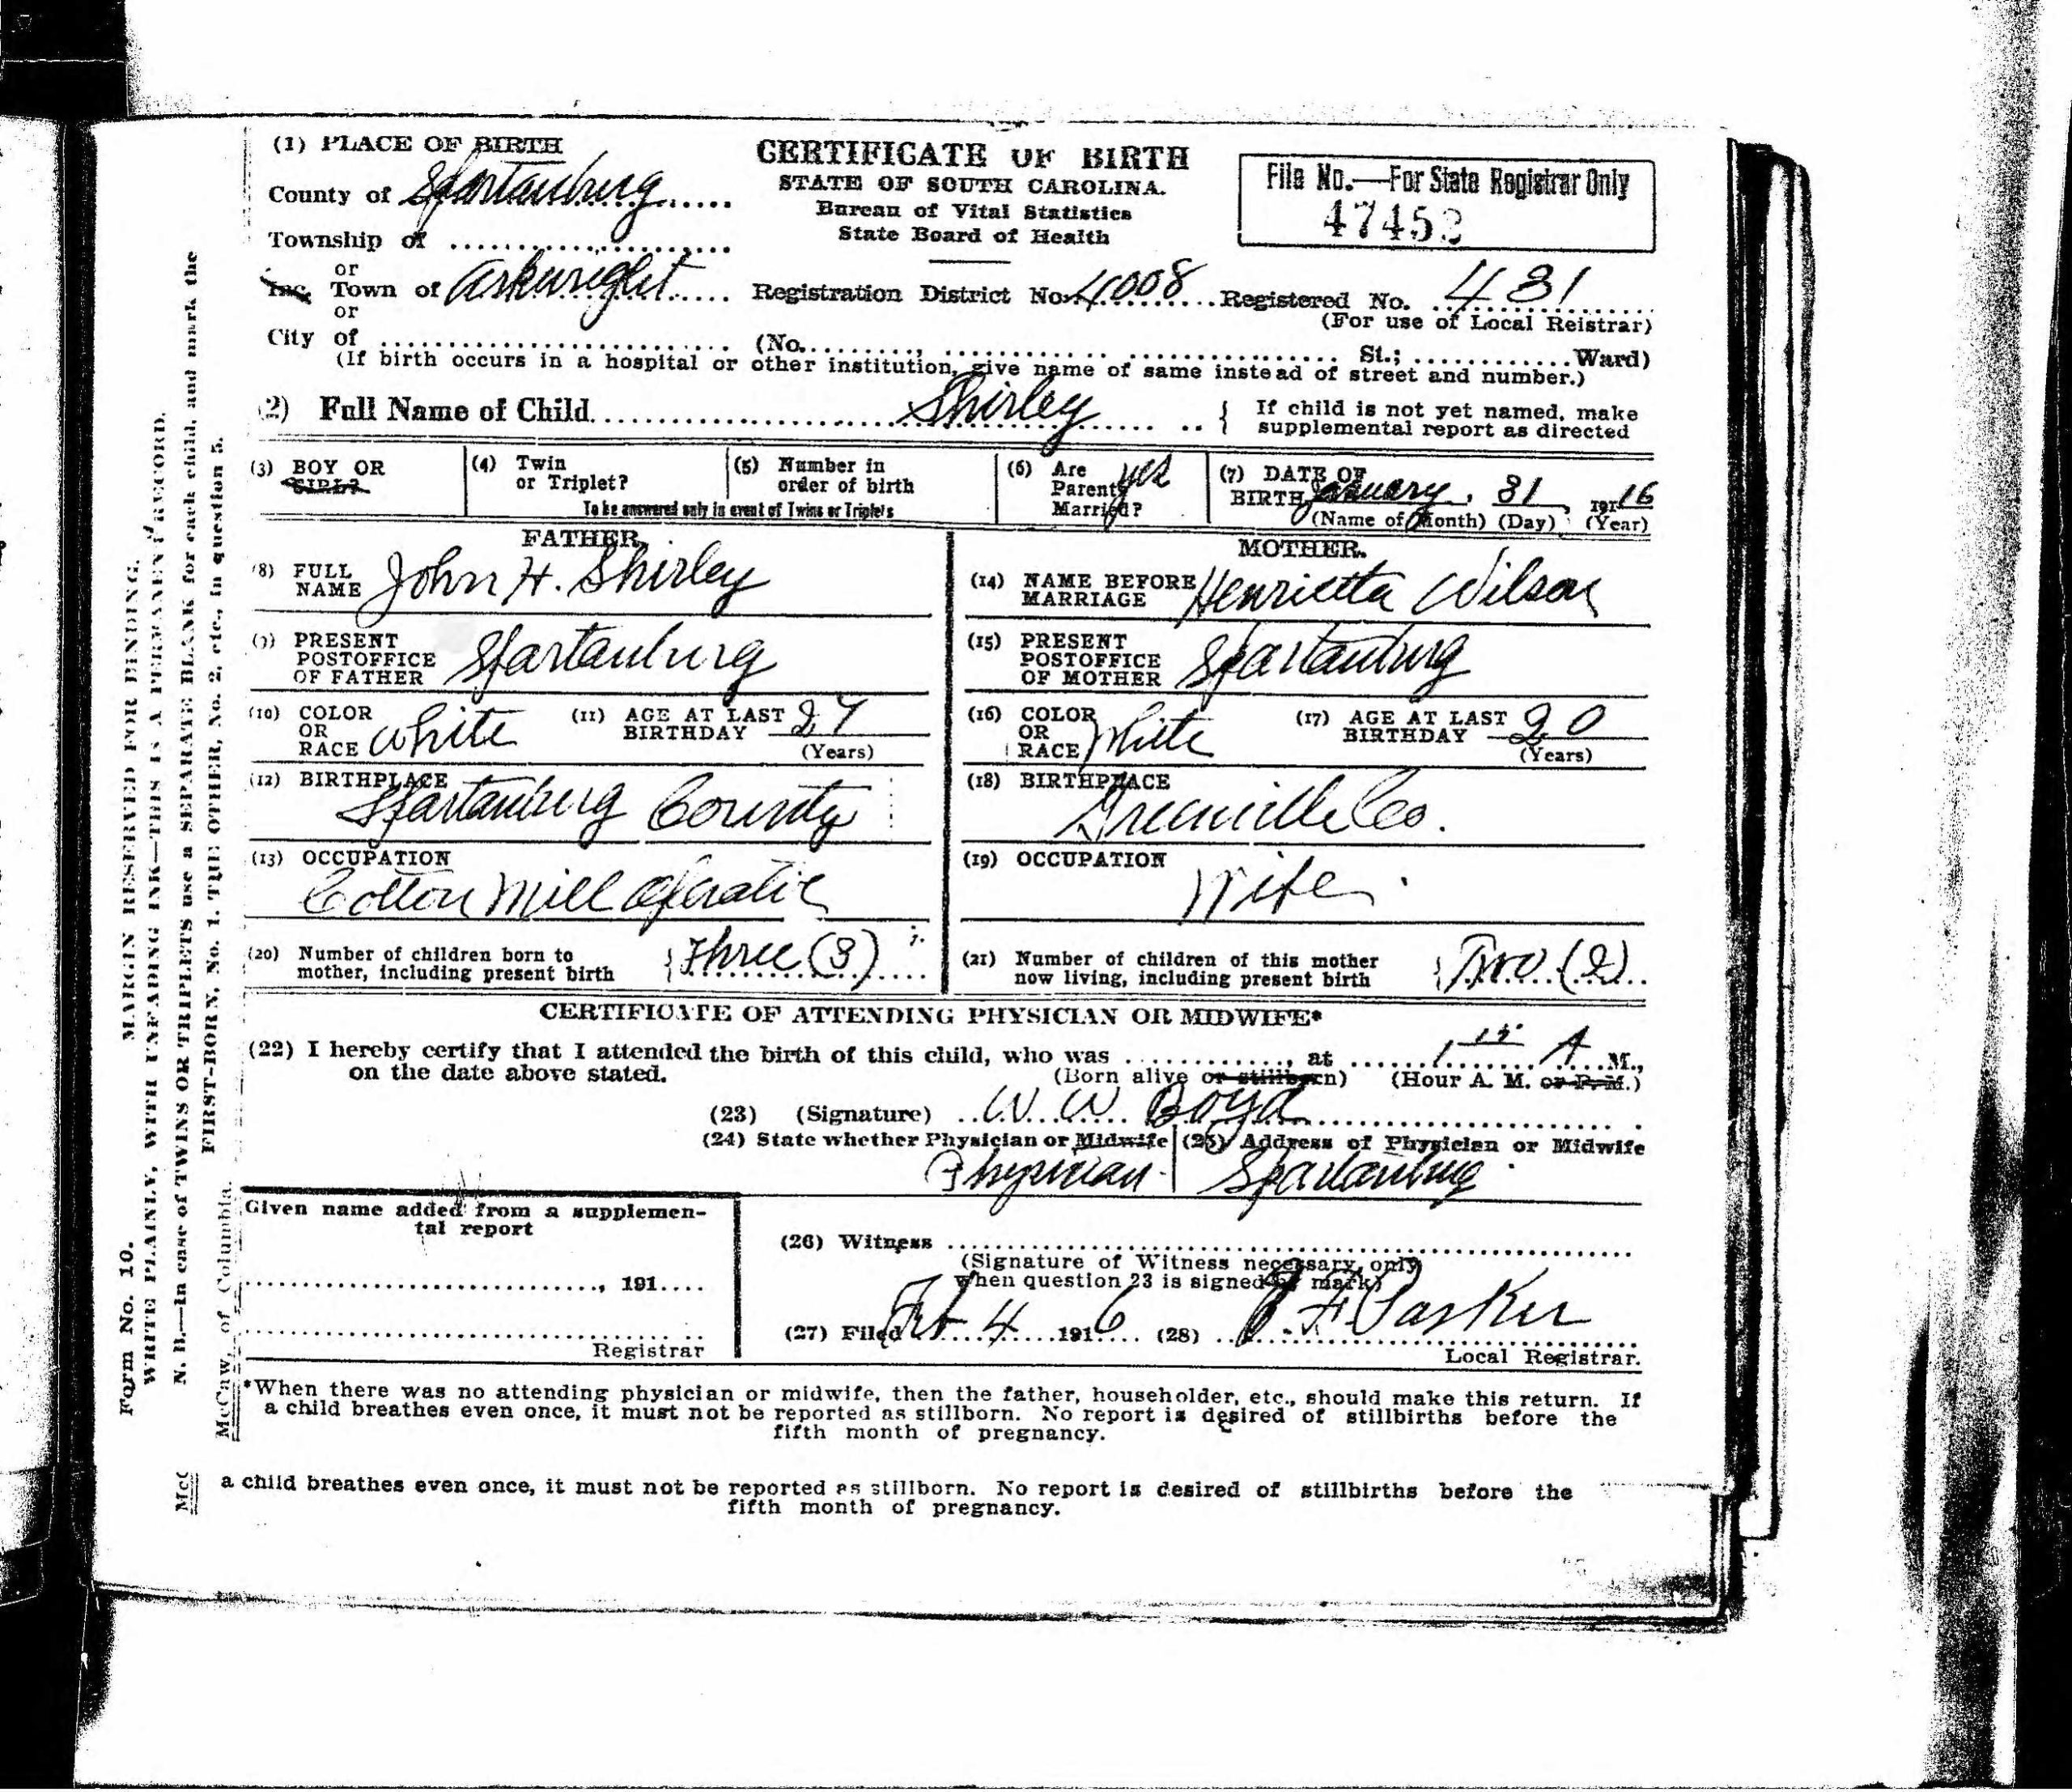 (1) PLACE OF BIRTH
County of Spartanburg
Township of
or
Inc. Town of Arkwright
or
City of (No. St.; Ward)
(If birth occurs in a hospital or other institution, give name of same instead of street and number.)
CERTIFICATE OF BIRTH
STATE OF SOUTH CAROLINA.
Bureau of Vital Statistics
State Board of Health
File No.—For State Registrar Only
47452
Registration District No. 4008 Registered No. 431
(For use of Local Reistrar)
(2) Full Name of Child Shirley
If child is not yet named, make
supplemental report as directed
(3) BOY OR
GIRL?
(4) Twin
or Triplet?
(5) Number in
order of birth
To be answered only in event of Twins or Triplets
(6) Are
Parents
Married?
yes
(7) DATE OF
BIRTH January, 31, 1916
(Name of Month) (Day) (Year)
FATHER.
(8) FULL
NAME John H. Shirley
(9) PRESENT
POSTOFFICE
OF FATHER Spartanburg
(10) COLOR
OR
RACE White
(11) AGE AT LAST
BIRTHDAY
(Years)
(12) BIRTHPLACE
Spartanburg County
(13) OCCUPATION
Cotton Mill Operative
(20) Number of children born to
mother, including present birth Three (3)
MOTHER.
(14) NAME BEFORE
MARRIAGE Henrietta Wilson
(15) PRESENT
POSTOFFICE
OF MOTHER Spartanburg
(16) COLOR
OR
RACE White
(17) AGE AT LAST
BIRTHDAY 20
(Years)
(18) BIRTHPLACE
Greenville Co.
(19) OCCUPATION
Wife
(21) Number of children of this mother
now living, including present birth Two (2)
CERTIFICATE OF ATTENDING PHYSICIAN OR MIDWIFE*
(22) I hereby certify that I attended the birth of this child, who was , at 1 15 A M.,
on the date above stated. (Born alive or stillborn) (Hour A. M. or P. M.)
(23) (Signature) W. W. Boyd
(24) State whether Physician or Midwife (25) Address of Physician or Midwife
Physician Spartanburg
Given name added from a supplemen-
tal report
, 191
Registrar
(26) Witness
(Signature of Witness necessary only
when question 23 is signed by mark)
(27) Filed Feb 4 1916 (28) F Parker
Local Registrar.
*When there was no attending physician or midwife, then the father, householder, etc., should make this return. If
a child breathes even once, it must not be reported as stillborn. No report is desired of stillbirths before the
fifth month of pregnancy.
a child breathes even once, it must not be reported as stillborn. No report is desired of stillbirths before the
fifth month of pregnancy.
Form No. 10.
MARGIN RESERVED FOR BINDING.
WRITE PLAINLY, WITH UNFADING INK—THIS IS A PERMANENT RECORD.
N. B.—In case of TWINS OR TRIPLETS use a SEPARATE BLANK for each child, and mark the
FIRST-BORN, No. 1. THE OTHER, No. 2, etc., in question 5.
McCaw, of Columbia.
McC